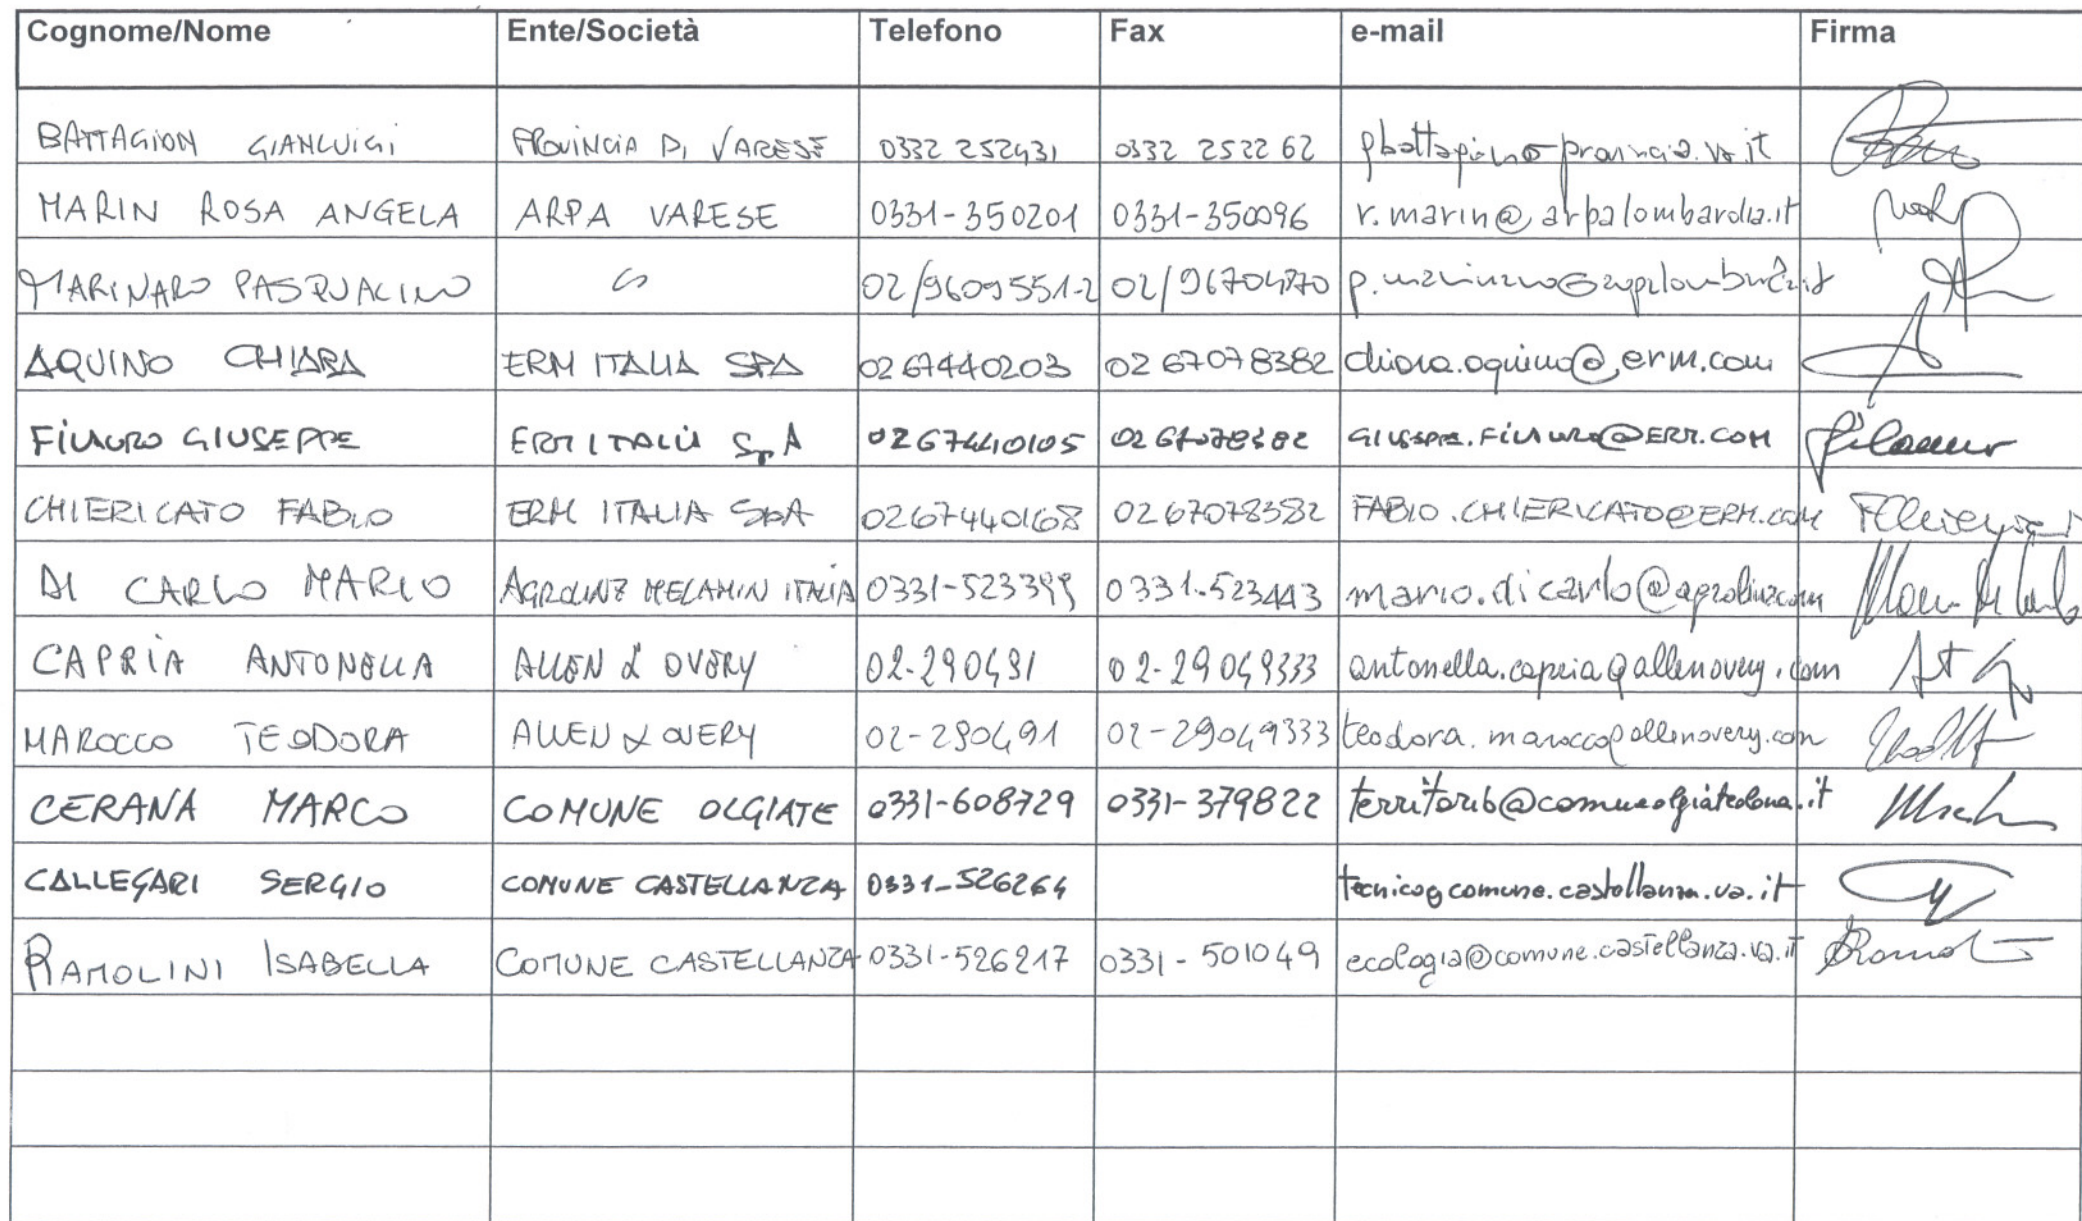 Cognome/Nome Ente/Società Telefono Fax e-mail Firma
BATTAGION GIANLUIGI PROVINCIA DI VARESE 0332 252431 0332 252262
MARIN ROSA ANGELA ARPA VARESE 0331-350201 0331-350096 r.marin@arpalombardia.it
MARINARO PASQUALINO 02/9609551-2 02/96704870
AQUINO CHIARA ERM ITALIA SPA 02 67440203 02 67078382 chiara.aquino@erm.com
GIUSEPPE ERM ITALIA SpA 02 67440105 02 67078382
CHIERICATO FABIO ERM ITALIA SpA 02 67440168 02 67078382 FABIO.CHIERICATO@ERM.COM
DI CARLO MARIO AGROLINZ MELAMIN ITALIA 0331-523399 0331-523443 mario.dicarlo@agrolinz.com
CAPRIA ANTONELLA ALLEN & OVERY 02-290491 02-29049333 antonella.capria@allenovery.com
MAROCCO TEODORA ALLEN & OVERY 02-290491 02-29049333 teodora.marocco@allenovery.com
CERANA MARCO COMUNE OLGIATE 0331-608729 0331-379822 territorio@comuneolgiateolona.it
CALLEGARI SERGIO COMUNE CASTELLANZA 0331-526264 tecnico@comune.castellanza.va.it
RAMOLINI ISABELLA COMUNE CASTELLANZA 0331-526217 0331-501049 ecologia@comune.castellanza.va.it